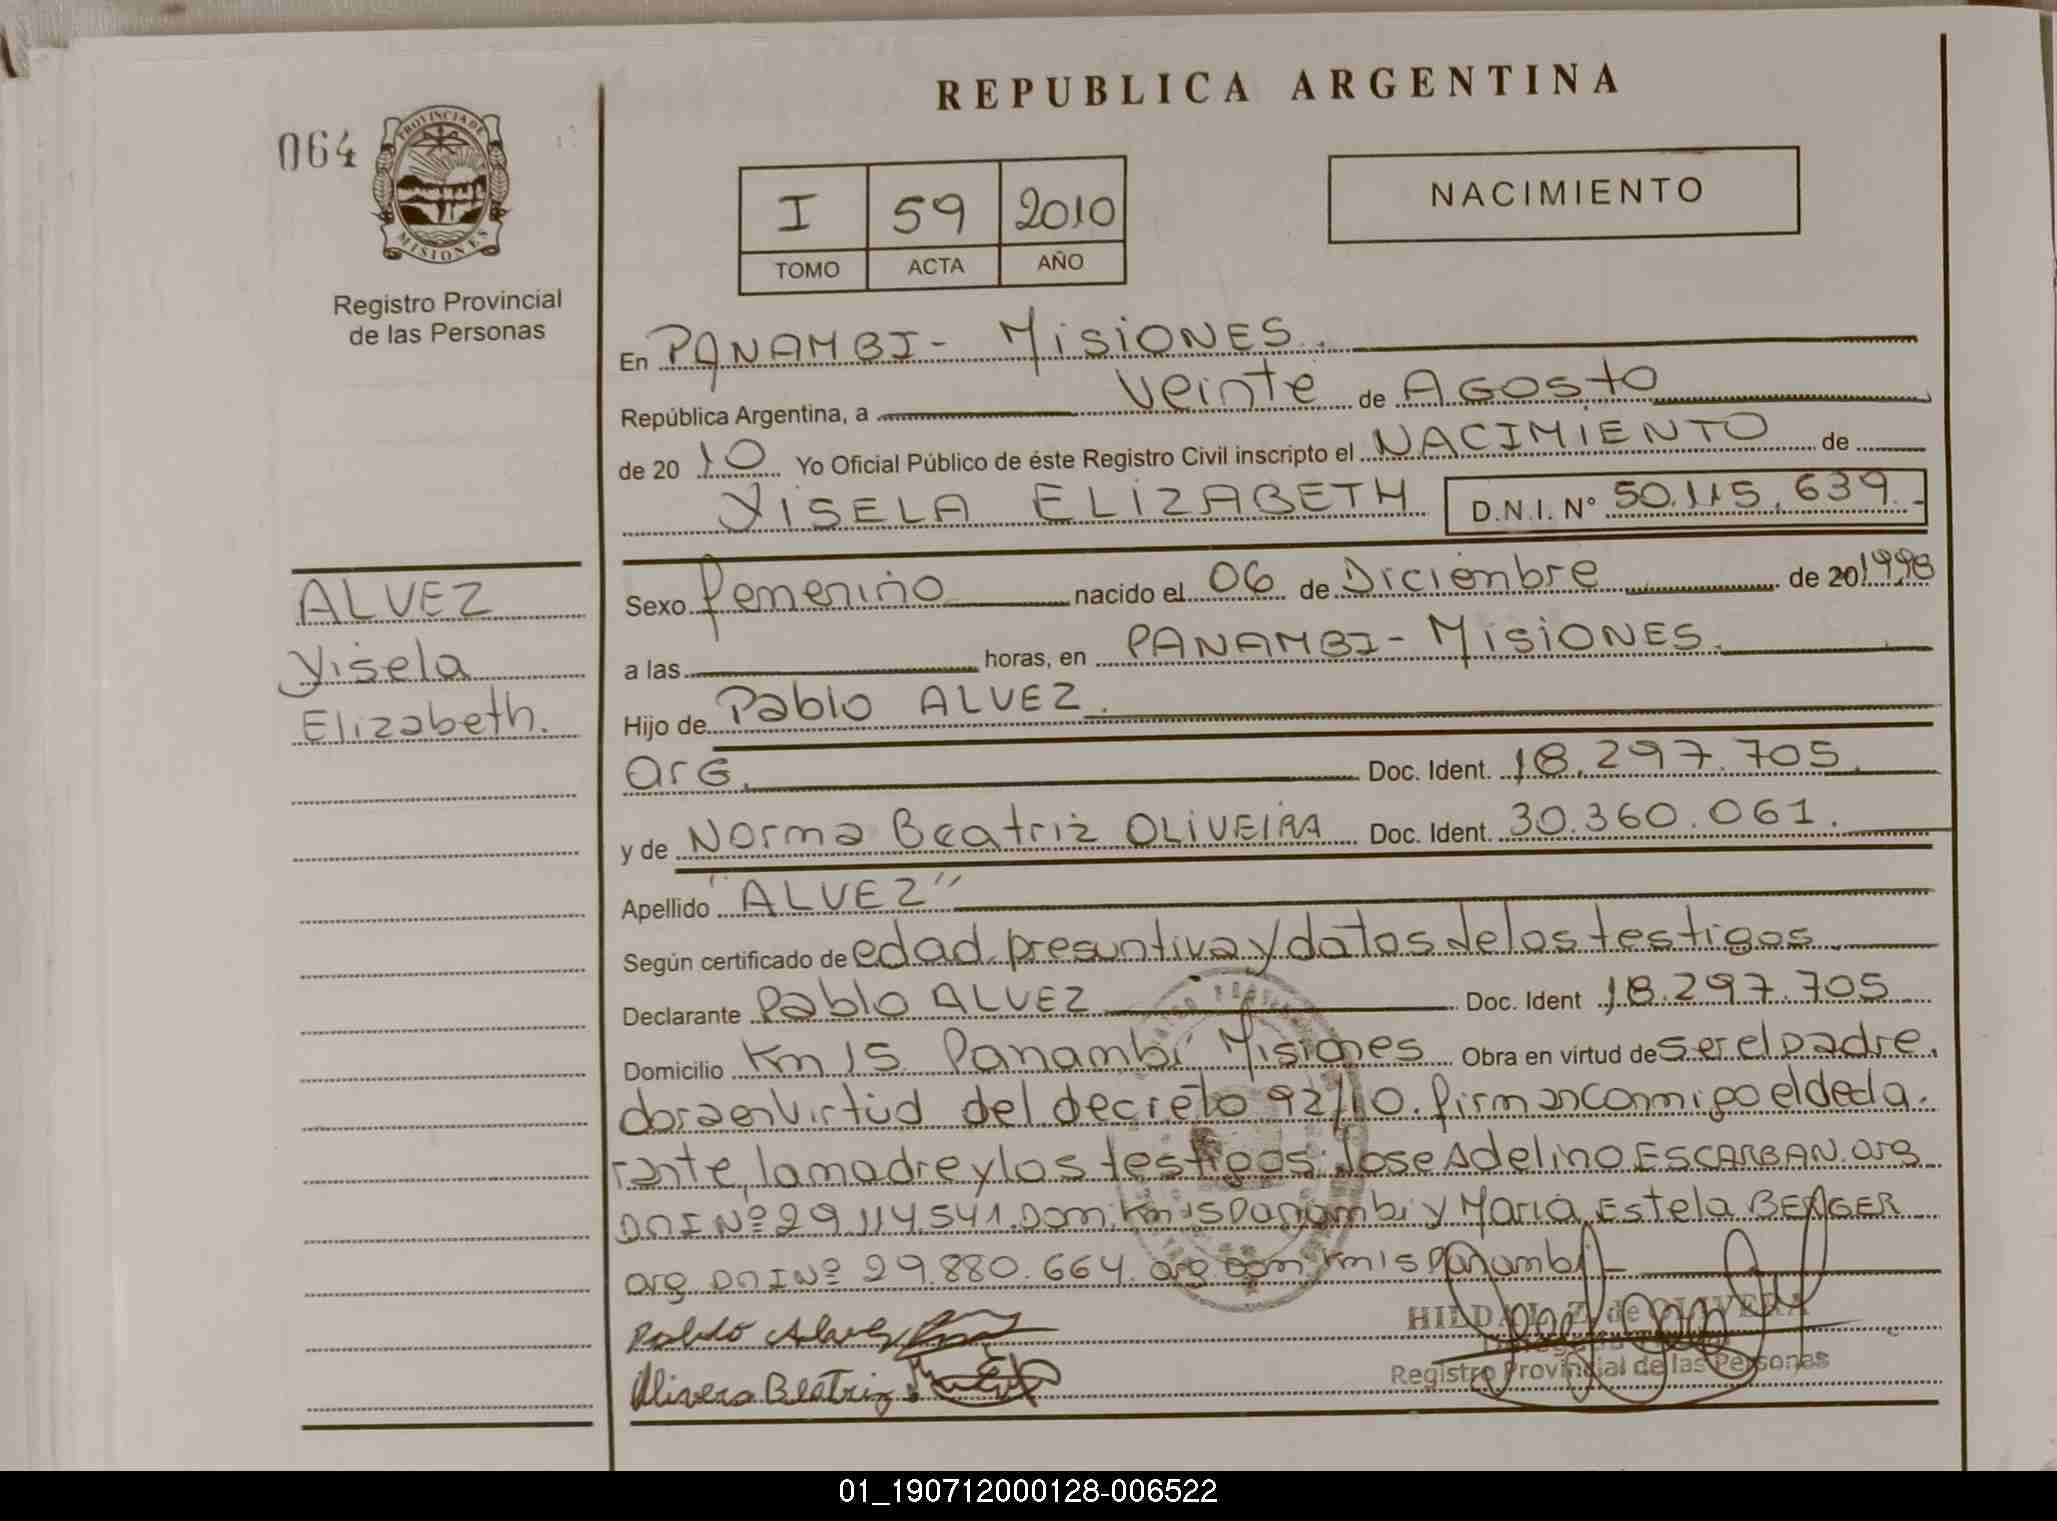 REPUBLICA ARGENTINA
064
PROVINCIA DE
MISIONES
Registro Provincial
de las Personas
I 59 2010
TOMO ACTA AÑO
NACIMIENTO
En PANAMBI - MISIONES.
República Argentina, a veinte de AGOSTO
de 20 10 Yo Oficial Público de éste Registro Civil inscripto el NACIMIENTO de
YISELA ELIZABETH D.N.I. Nº 50.115.639.-
ALVEZ
Yisela
Elizabeth.
Sexo femenino nacido el 06 de Diciembre de 20 1998
a las horas, en PANAMBI - MISIONES.
Hijo de Pablo ALVEZ.
arg. Doc. Ident. 18.297.705.
y de Norma Beatriz OLIVEIRA Doc. Ident. 30.360.061.
Apellido "ALVEZ"
Según certificado de edad presuntiva y datos de los testigos.
Declarante Pablo ALVEZ Doc. Ident 18.297.705
Domicilio Km 15 Panambí Misiones Obra en virtud de ser el padre.
dora en virtud del decreto 92/10. firman conmigo el decla-
rante, la madre y los testigos: Jose Adelino ESCARBAN. arg
DNI Nº 29.114.541. Dom. Km 15 Panambi y Maria Estela BERGER
arg. DNI Nº 29.880.664. arg. dom Km 15 Panambi -
Pablo Alvez
Olivera Beatriz
HILDA Z. de OLIVERA
Registro Provincial de las Personas
01_190712000128-006522